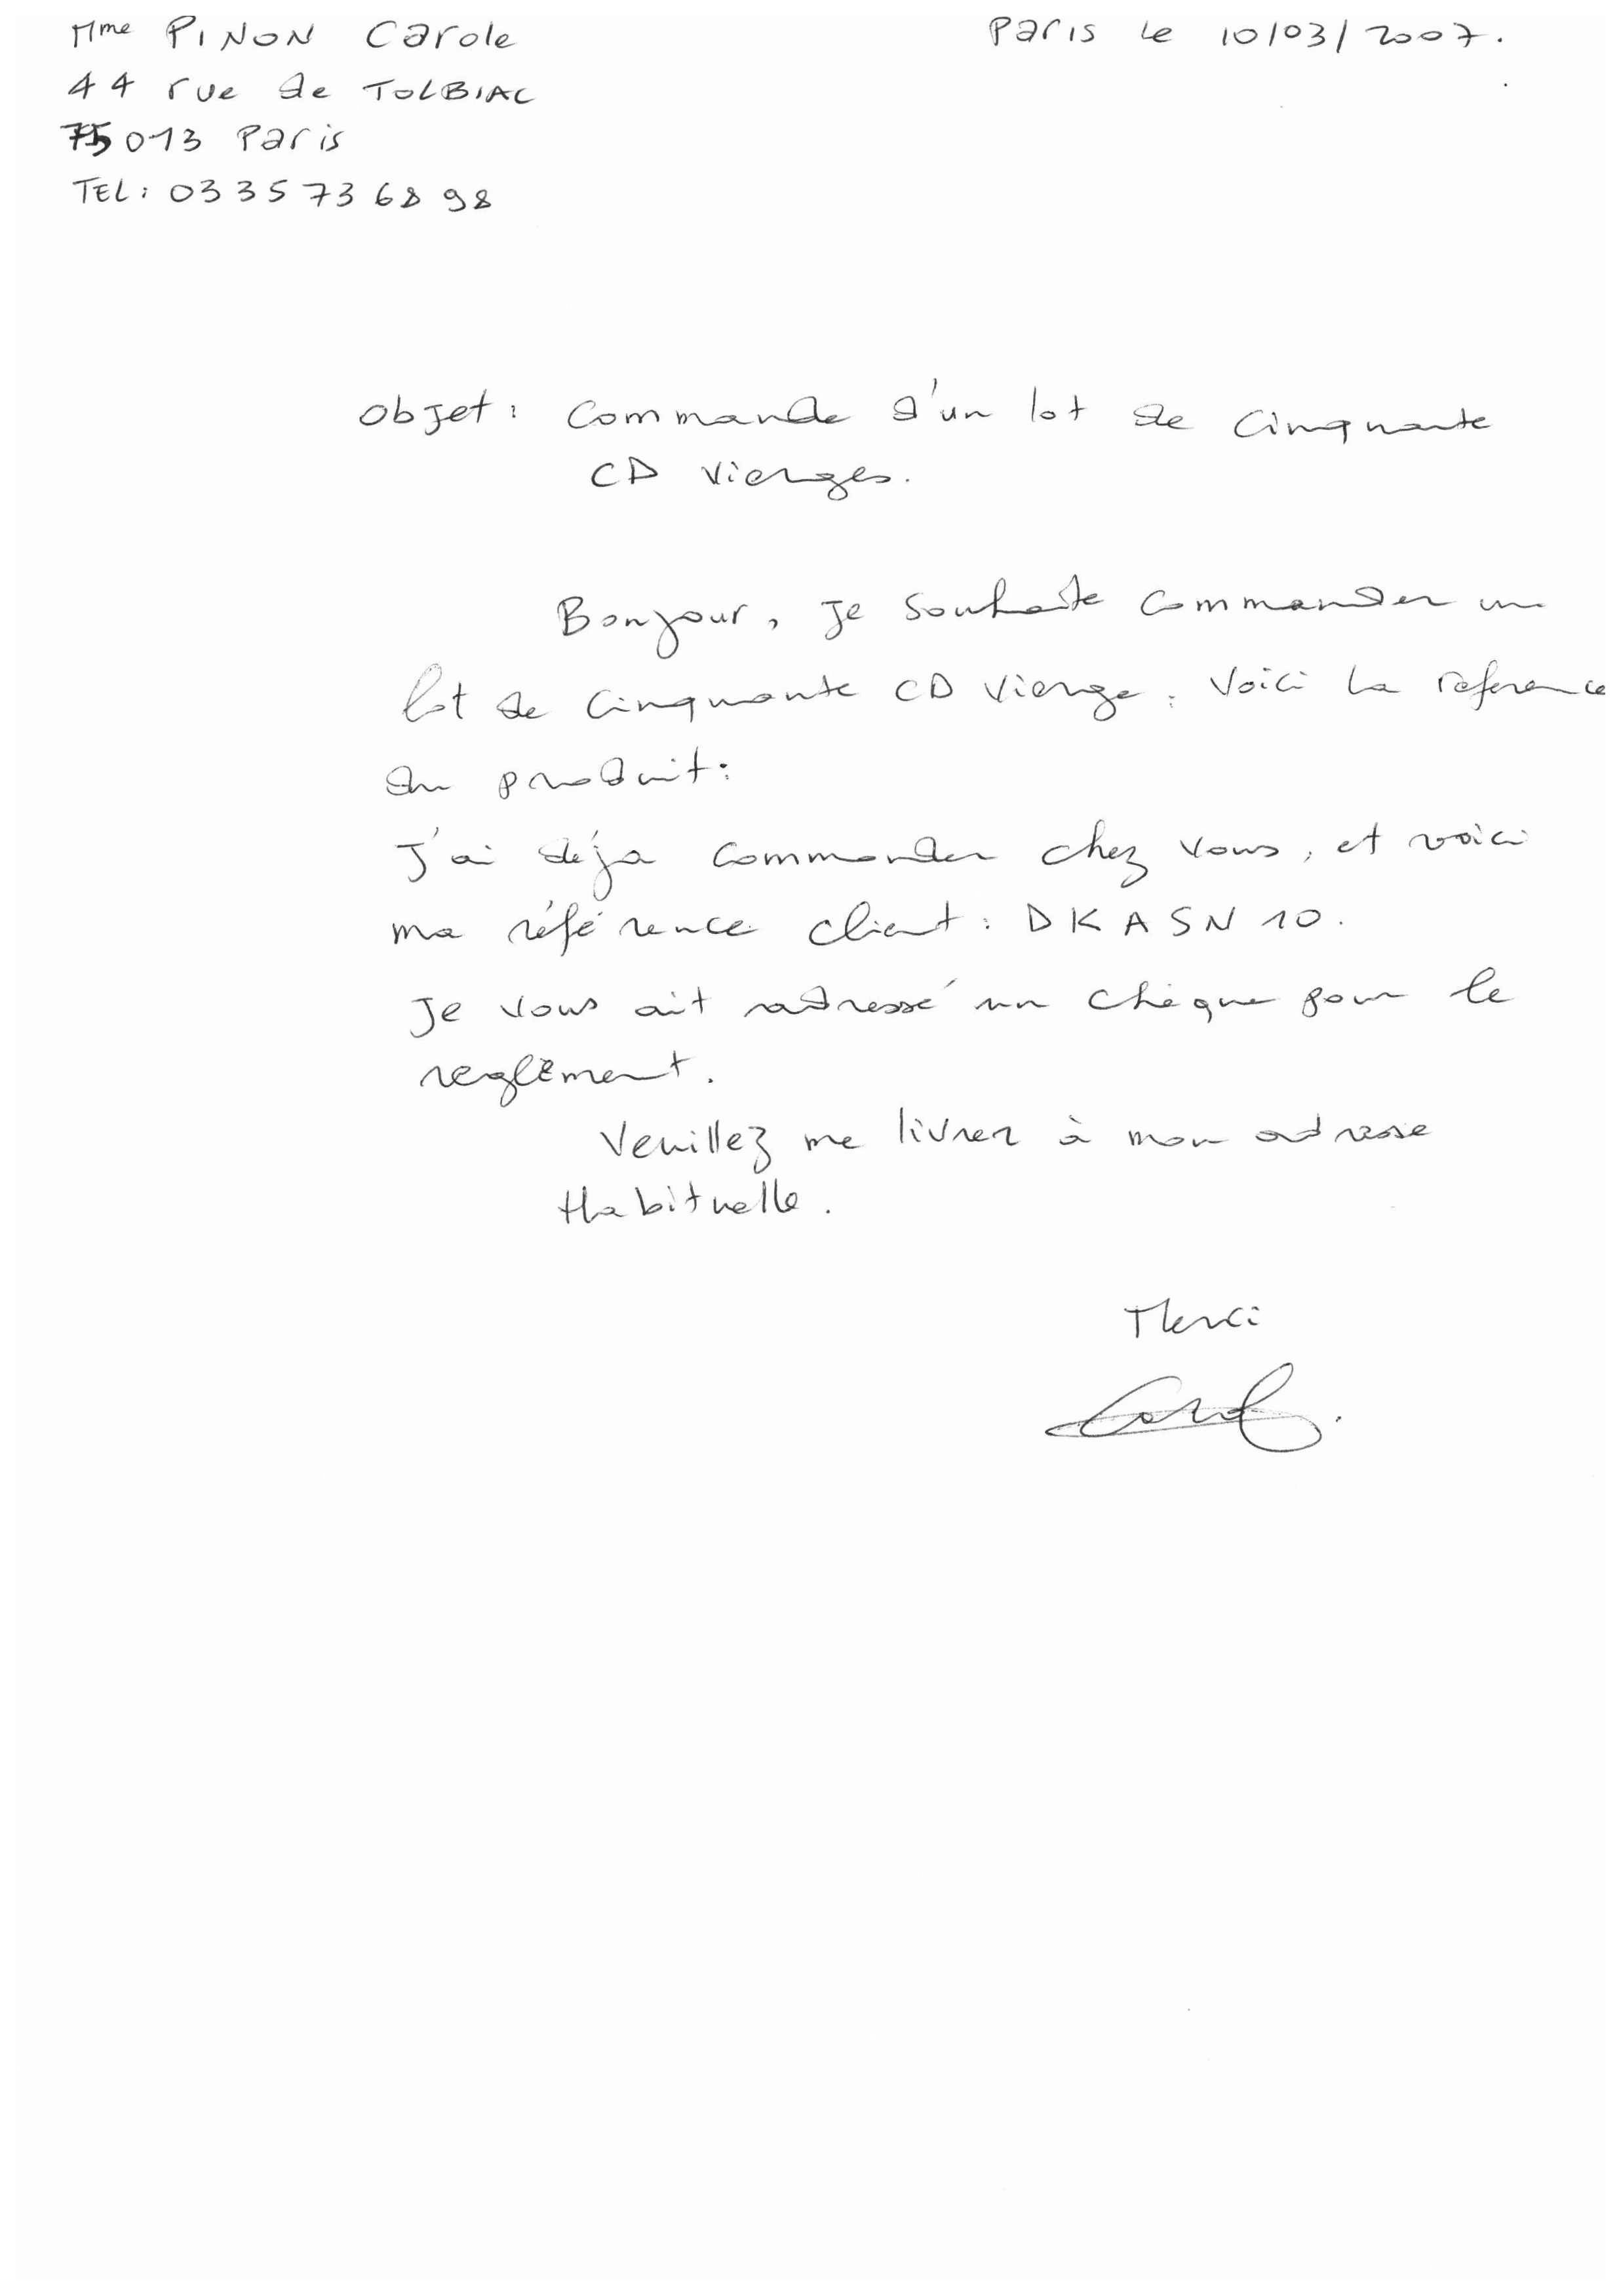 Mme PINON Carole
Paris le 10/03/2007.
44 rue de TOLBIAC
75013 Paris
TEL: 03 35 73 68 98
Objet: Commande d'un lot de cinquante
CD vierges.
Bonjour, je souhaite commander un
lot de cinquante CD vierge. Voici la reference
du produit:
J'ai déja commander chez vous, et voici
ma référence client: DKASN10.
Je vous ait adressé un chèque pour le
reglement.
Veuillez me livrer à mon adresse
Habituelle.
Merci
Carol